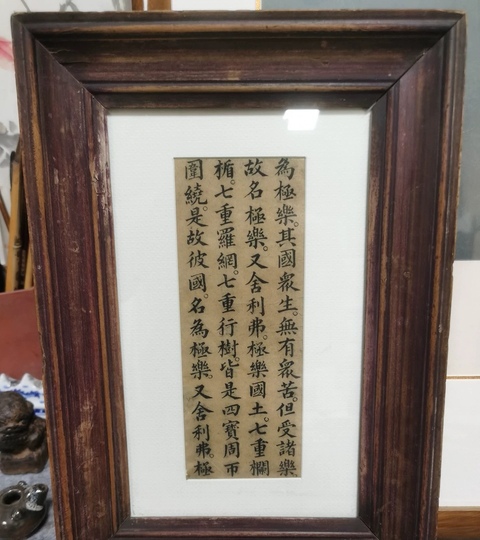 為極樂。其國眾生。無有眾苦。但受諸樂
故名極樂。又舍利弗。極樂國土。七重欄
楯。七重羅網。七重行樹。皆是四寶周帀
圍繞。是故彼國。名為極樂。又舍利弗。極